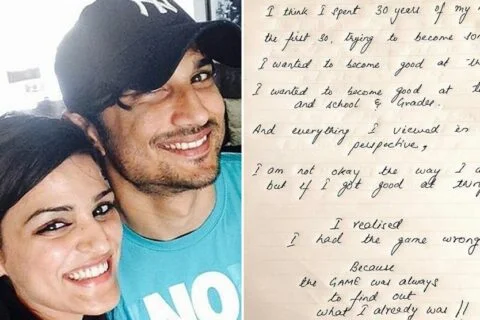 NY
NO
I think I spent 30 years of my
the first 30, trying to become
I wanted to become good at
I wanted to become good at
and school & Grades.
And everything I viewed in
perspective,
I am not okay the way I
but if I got good at
I realised
I had the game wrong
Because
the GAME was always
to find out
what I already was //